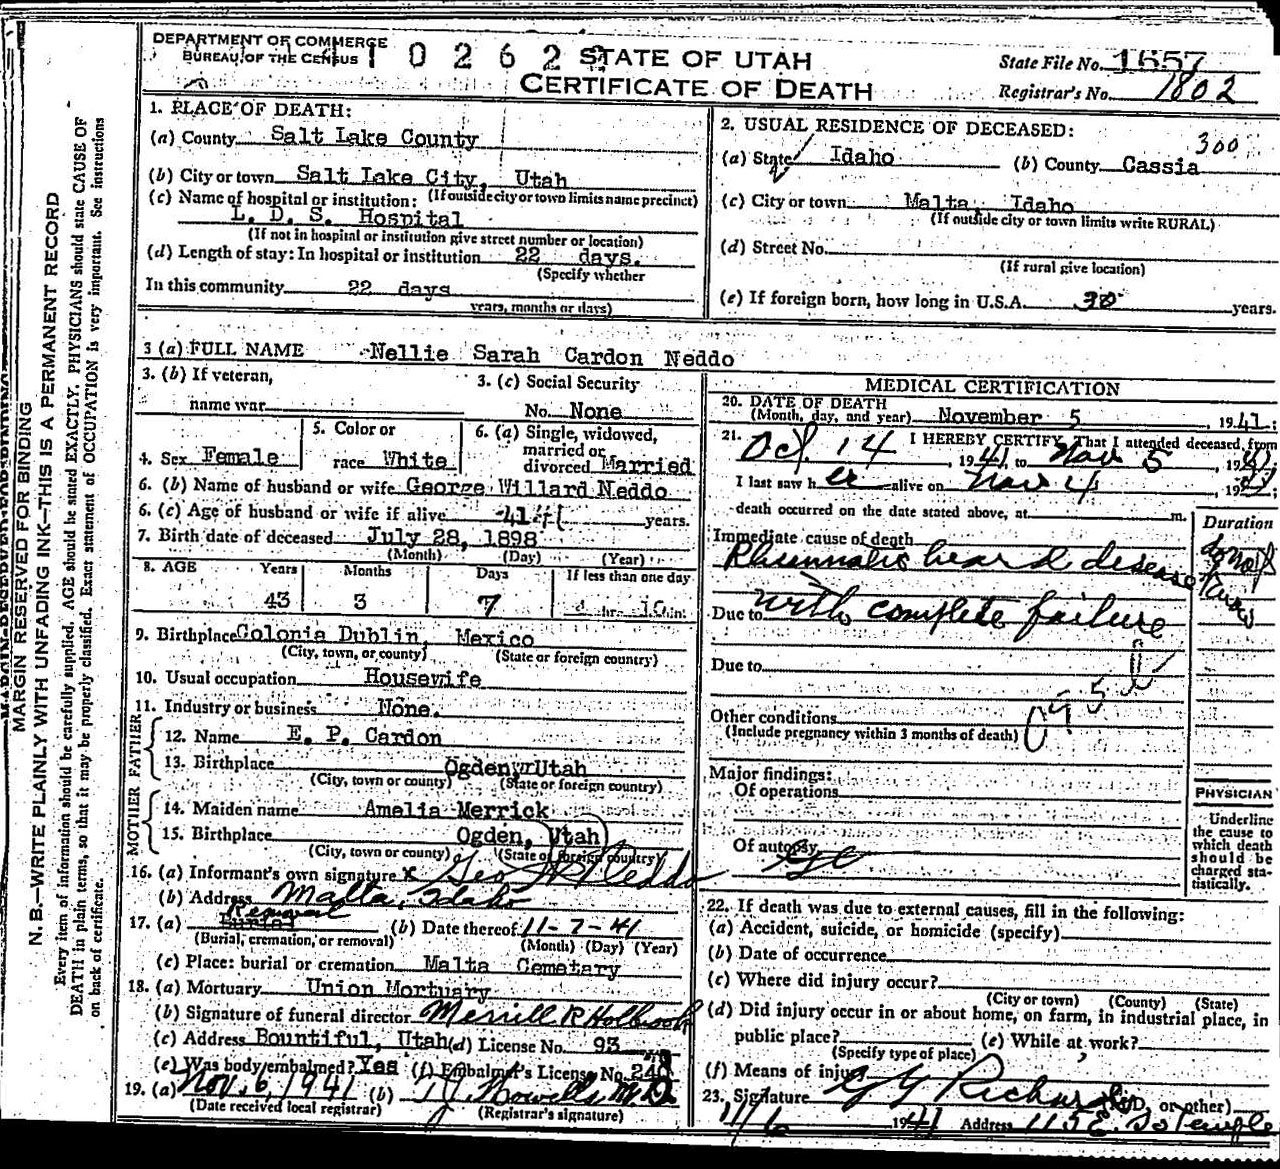 DEPARTMENT OF COMMERCE
BUREAU OF THE CENSUS
1 0 2 6 2
STATE OF UTAH
CERTIFICATE OF DEATH
State File No. 1657
Registrar's No. 1802
MARGIN RESERVED FOR BINDING
N. B.—WRITE PLAINLY WITH UNFADING INK—THIS IS A PERMANENT RECORD
Every item of information should be carefully supplied. AGE should be stated EXACTLY. PHYSICIANS should state CAUSE OF
DEATH in plain terms, so that it may be properly classified. Exact statement of OCCUPATION is very important. See instructions
on back of certificate.
1. PLACE OF DEATH:
(a) County Salt Lake County
(b) City or town Salt Lake City, Utah
(If outside city or town limits name precinct)
(c) Name of hospital or institution:
L. D. S. Hospital
(If not in hospital or institution give street number or location)
(d) Length of stay: In hospital or institution 22 days.
(Specify whether
In this community 22 days
years, months or days)
2. USUAL RESIDENCE OF DECEASED:
300
(a) State Idaho (b) County Cassia
(c) City or town Malta, Idaho
(If outside city or town limits write RURAL)
(d) Street No.
(If rural give location)
(e) If foreign born, how long in U.S.A. 30 years.
3 (a) FULL NAME Nellie Sarah Cardon Neddo
3. (b) If veteran,
name war
3. (c) Social Security
No. None
4. Sex Female
5. Color or
race White
6. (a) Single, widowed,
married or
divorced Married
6. (b) Name of husband or wife George Willard Neddo
6. (c) Age of husband or wife if alive 41 41 years.
7. Birth date of deceased July 28, 1898
(Month) (Day) (Year)
8. AGE Years Months Days If less than one day
43 3 7 hr. min.
9. Birthplace Colonia Dublin, Mexico
(City, town, or county) (State or foreign country)
10. Usual occupation Housewife
11. Industry or business None.
FATHER
12. Name E. P. Cardon
13. Birthplace Ogden, Utah
(City, town or county) (State or foreign country)
MOTHER
14. Maiden name Amelia Merrick
15. Birthplace Ogden, Utah
(City, town or county) (State or foreign country)
16. (a) Informant's own signature x Geo W Neddo
(b) Address Malta, Idaho
Removal
17. (a) Burial (b) Date thereof 11-7-41
(Burial, cremation, or removal) (Month) (Day) (Year)
(c) Place: burial or cremation Malta Cemetary
18. (a) Mortuary Union Mortuary
(b) Signature of funeral director Merrill R Holbrook
(c) Address Bountiful, Utah (d) License No. 93
(e) Was body embalmed? Yes (f) Embalmer's License No. 240
19. (a) Nov. 6, 1941 (b) T J Howells, M.D.
(Date received local registrar) (Registrar's signature)
MEDICAL CERTIFICATION
20. DATE OF DEATH
(Month, day, and year) November 5 1941;
21. I HEREBY CERTIFY, That I attended deceased from
Oct. 14, 1941, to Nov 5, 1941
I last saw her alive on Nov 4, 1941
death occurred on the date stated above, at m.
Duration
Immediate cause of death
Rheumatic heart disease
Due to with complete failure
Due to
095b
Other conditions
(Include pregnancy within 3 months of death)
Major findings:
Of operations
Of autopsy
PHYSICIAN
Underline
the cause to
which death
should be
charged sta-
tistically.
22. If death was due to external causes, fill in the following:
(a) Accident, suicide, or homicide (specify)
(b) Date of occurrence
(c) Where did injury occur?
(City or town) (County) (State)
(d) Did injury occur in or about home, on farm, in industrial place, in
public place? (e) While at work?
(Specify type of place)
(f) Means of injury
23. Signature G G Richards (M.D. or other)
11/6 1941 Address 115 E. So Temple